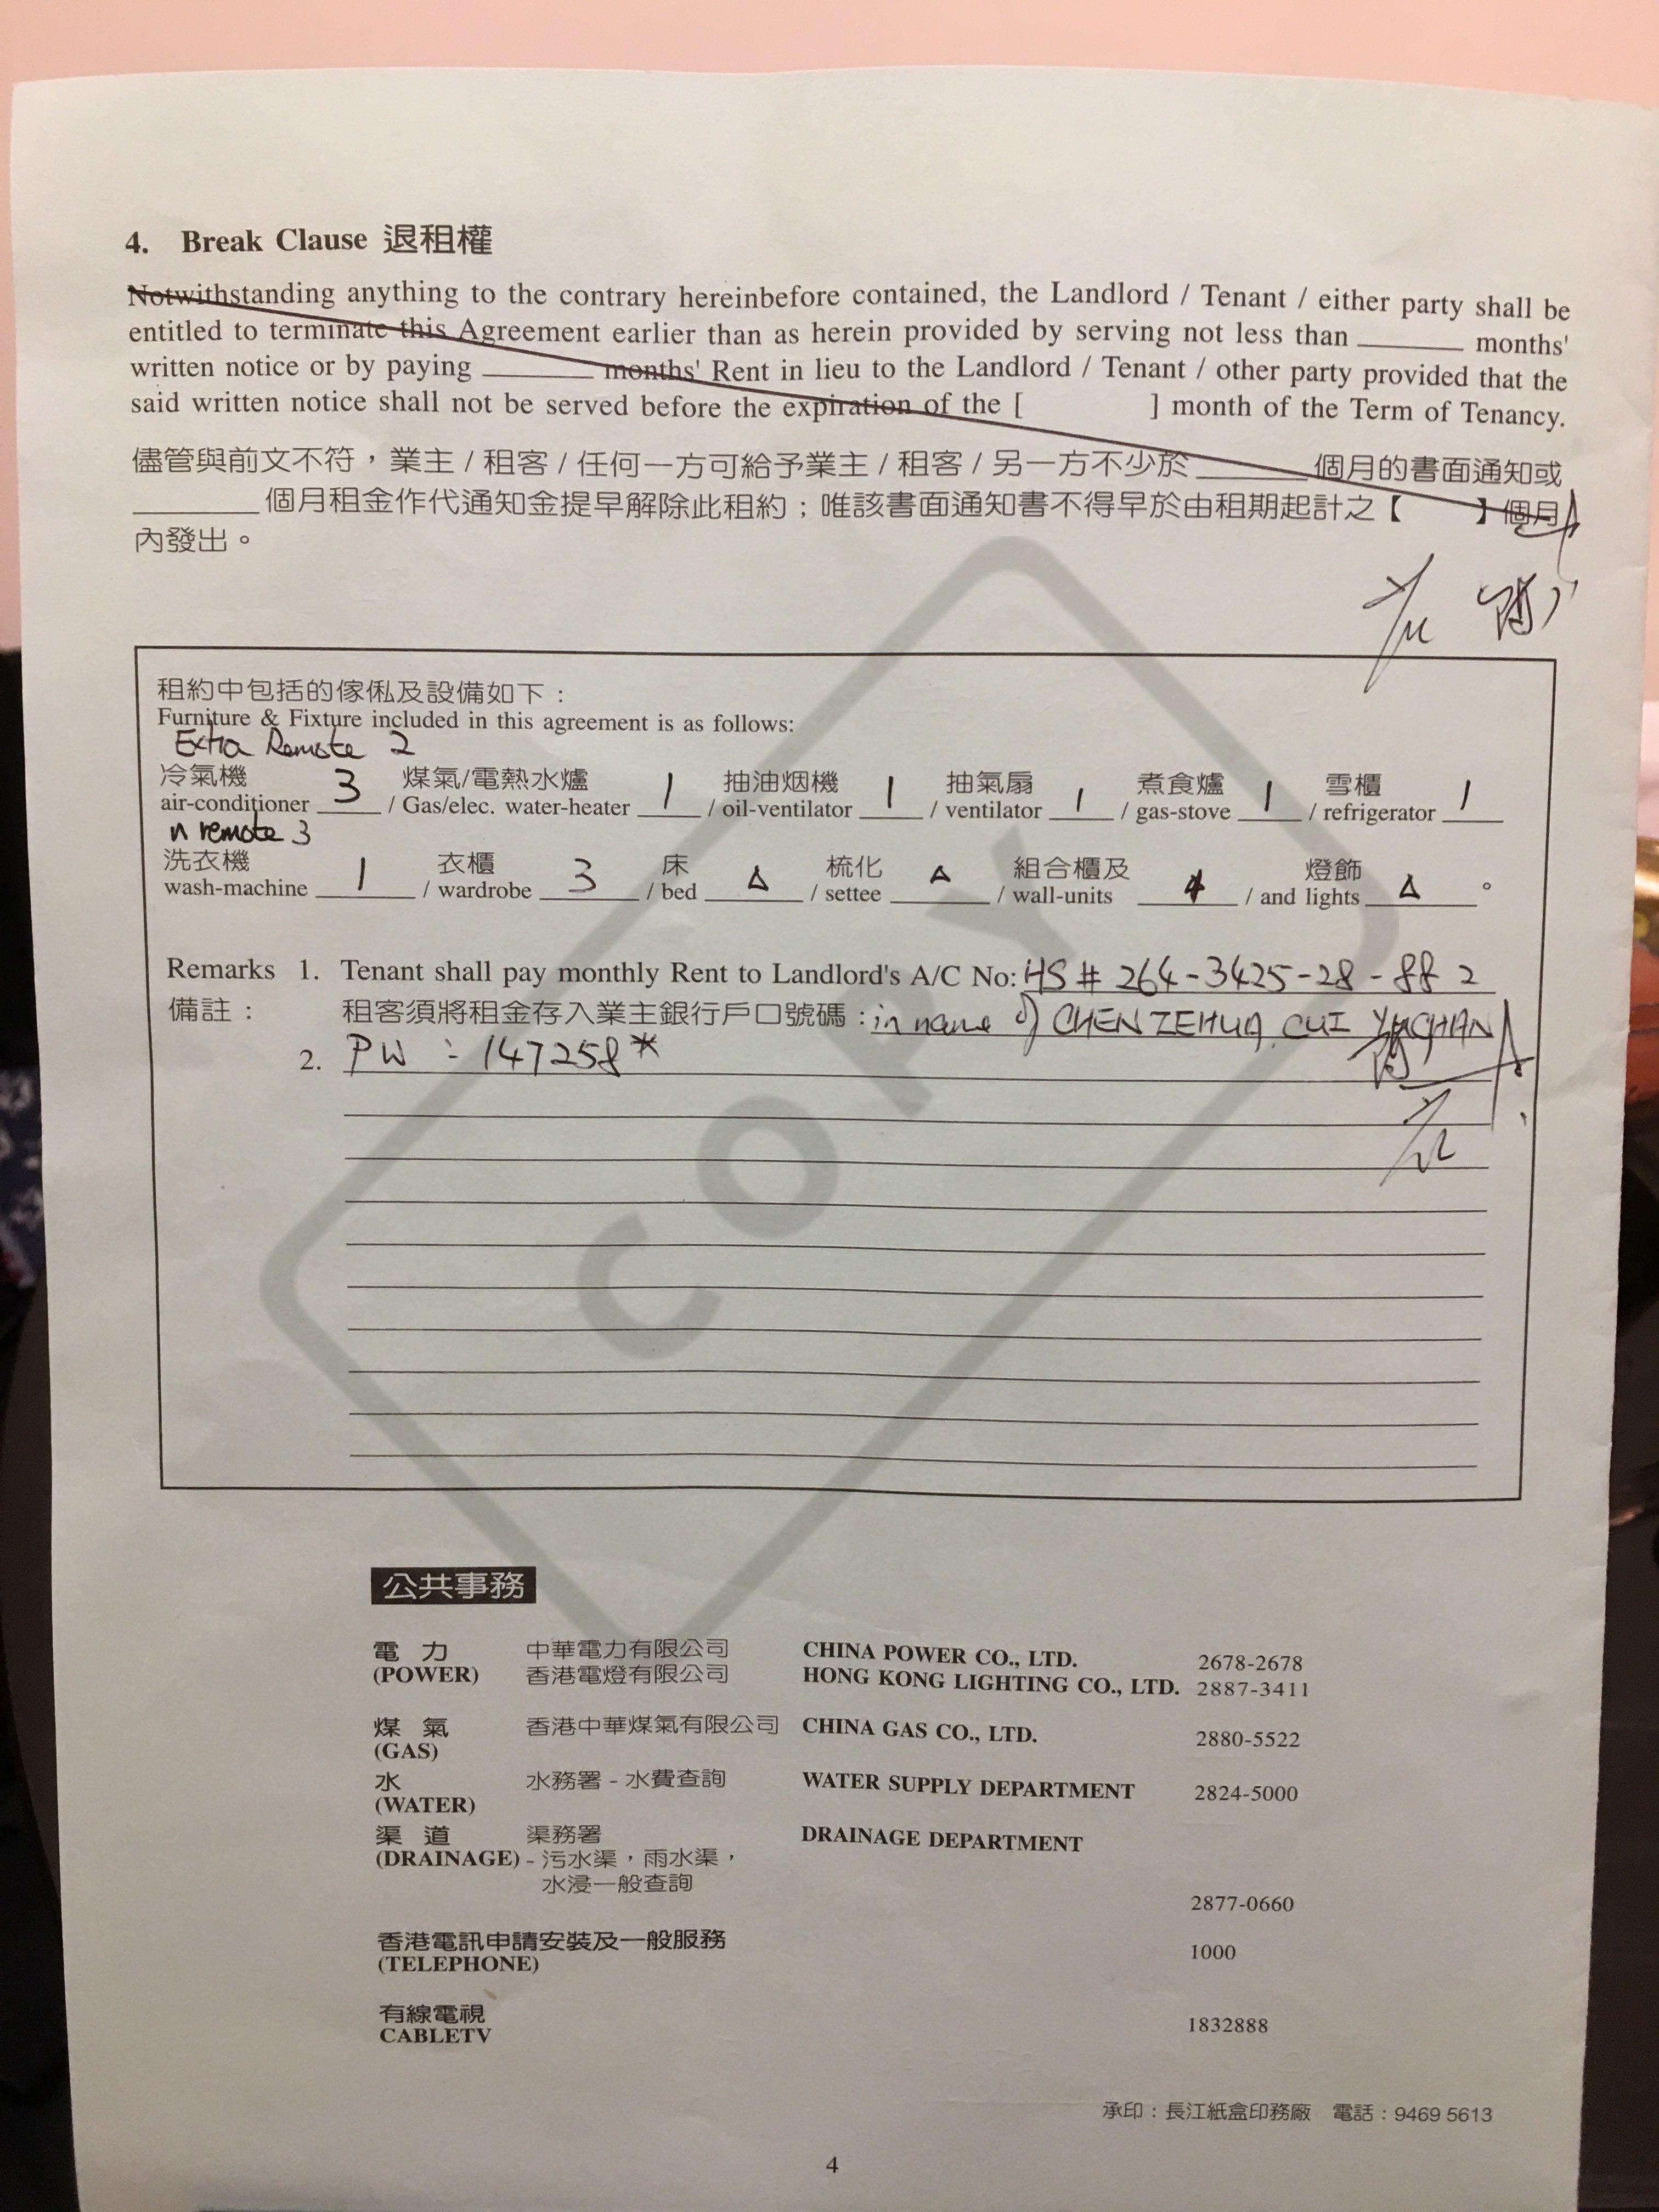 4. Break Clause 退租權
Notwithstanding anything to the contrary hereinbefore contained, the Landlord / Tenant / either party shall be
entitled to terminate this Agreement earlier than as herein provided by serving not less than ______ months'
written notice or by paying ______ months' Rent in lieu to the Landlord / Tenant / other party provided that the
said written notice shall not be served before the expiration of the [ ] month of the Term of Tenancy.
儘管與前文不符，業主 / 租客 / 任何一方可給予業主 / 租客 / 另一方不少於______個月的書面通知或
______個月租金作代通知金提早解除此租約；唯該書面通知書不得早於由租期起計之【 】個月
內發出。
租約中包括的傢俬及設備如下：
Furniture & Fixture included in this agreement is as follows:
Extra Remote 2
冷氣機 煤氣/電熱水爐 抽油烟機 抽氣扇 煮食爐 雪櫃
air-conditioner 3 / Gas/elec. water-heater 1 / oil-ventilator 1 / ventilator 1 / gas-stove 1 / refrigerator 1
n remote 3
洗衣機 衣櫃 床 梳化 組合櫃及 燈飾
wash-machine 1 / wardrobe 3 / bed Δ / settee Δ / wall-units / and lights Δ 。
Remarks 1. Tenant shall pay monthly Rent to Landlord's A/C No: HS # 264-3425-28-88 2
備註： 租客須將租金存入業主銀行戶口號碼：in name of CHEN ZEHUA, CUI YUCHAN
2. PW : 147258*
COPY
公共事務
電 力 中華電力有限公司 CHINA POWER CO., LTD. 2678-2678
(POWER) 香港電燈有限公司 HONG KONG LIGHTING CO., LTD. 2887-3411
煤 氣 香港中華煤氣有限公司 CHINA GAS CO., LTD. 2880-5522
(GAS)
水 水務署 - 水費查詢 WATER SUPPLY DEPARTMENT 2824-5000
(WATER)
渠 道 渠務署 DRAINAGE DEPARTMENT
(DRAINAGE) - 污水渠，雨水渠，
水浸一般查詢
2877-0660
香港電訊申請安裝及一般服務 1000
(TELEPHONE)
有線電視 1832888
CABLETV
承印：長江紙盒印務廠 電話：9469 5613
4